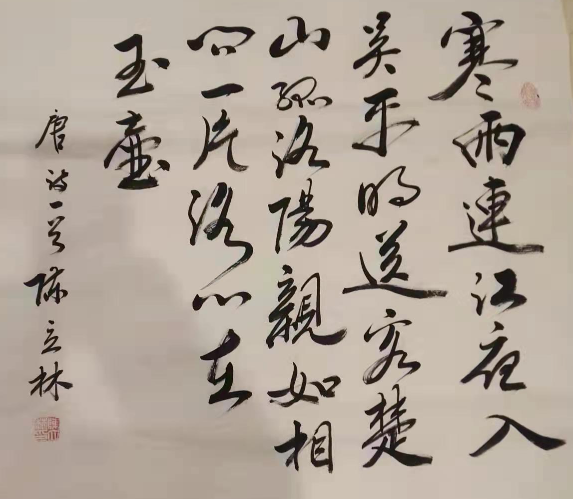 寒雨連江夜入
吴平明送客楚
山孤洛陽親如相
问一片冰心在
玉壺
唐诗一首 陈立林